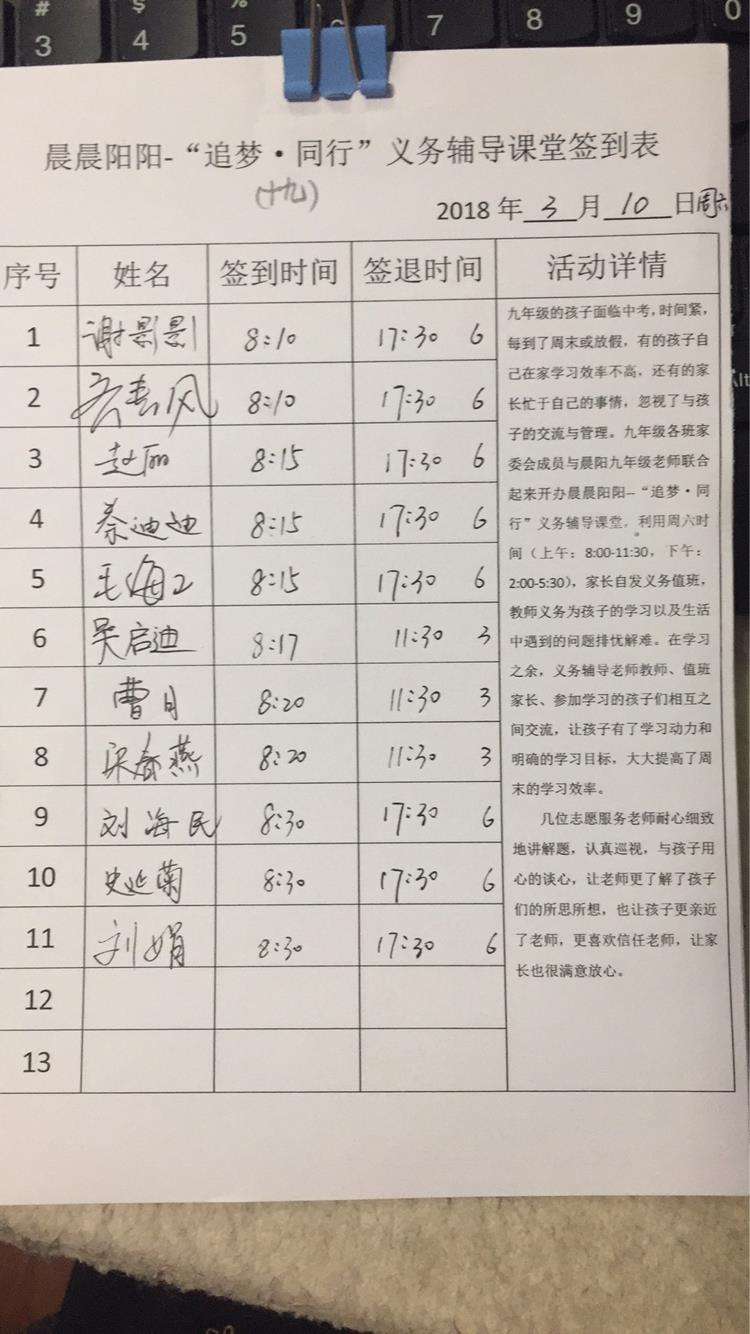 # $ % 
3 4 5 6 7 8 9 0
晨晨阳阳-“追梦·同行”义务辅导课堂签到表
(十九)
2018 年 3 月 10 日 周六
序号 姓名 签到时间 签退时间 活动详情
1 谢影影 8:10 17:30 6
2 春风 8:10 17:30 6
3 赵丽 8:15 17:30 6
4 秦迪迪 8:15 17:30 6
5 毛海 8:15 17:30 6
6 吴启迪 8:17 11:30 3
7 曹月 8:20 11:30 3
8 梁春燕 8:20 11:30 3
9 刘海民 8:30 17:30 6
10 史延菊 8:30 17:30 6
11 刘娟 8:30 17:30 6
12
13
九年级的孩子面临中考，时间紧，
每到了周末或放假，有的孩子自
己在家学习效率不高，还有的家
长忙于自己的事情，忽视了与孩
子的交流与管理。九年级各班家
委会成员与晨阳九年级老师联合
起来开办晨晨阳阳--“追梦·同
行”义务辅导课堂，利用周六时
间（上午：8:00-11:30，下午：
2:00-5:30），家长自发义务值班，
教师义务为孩子的学习以及生活
中遇到的问题排忧解难。在学习
之余，义务辅导老师教师、值班
家长、参加学习的孩子们相互之
间交流，让孩子有了学习动力和
明确的学习目标，大大提高了周
末的学习效率。
几位志愿服务老师耐心细致
地讲解题，认真巡视，与孩子用
心的谈心，让老师更了解了孩子
们的所思所想，也让孩子更亲近
了老师，更喜欢信任老师，让家
长也很满意放心。